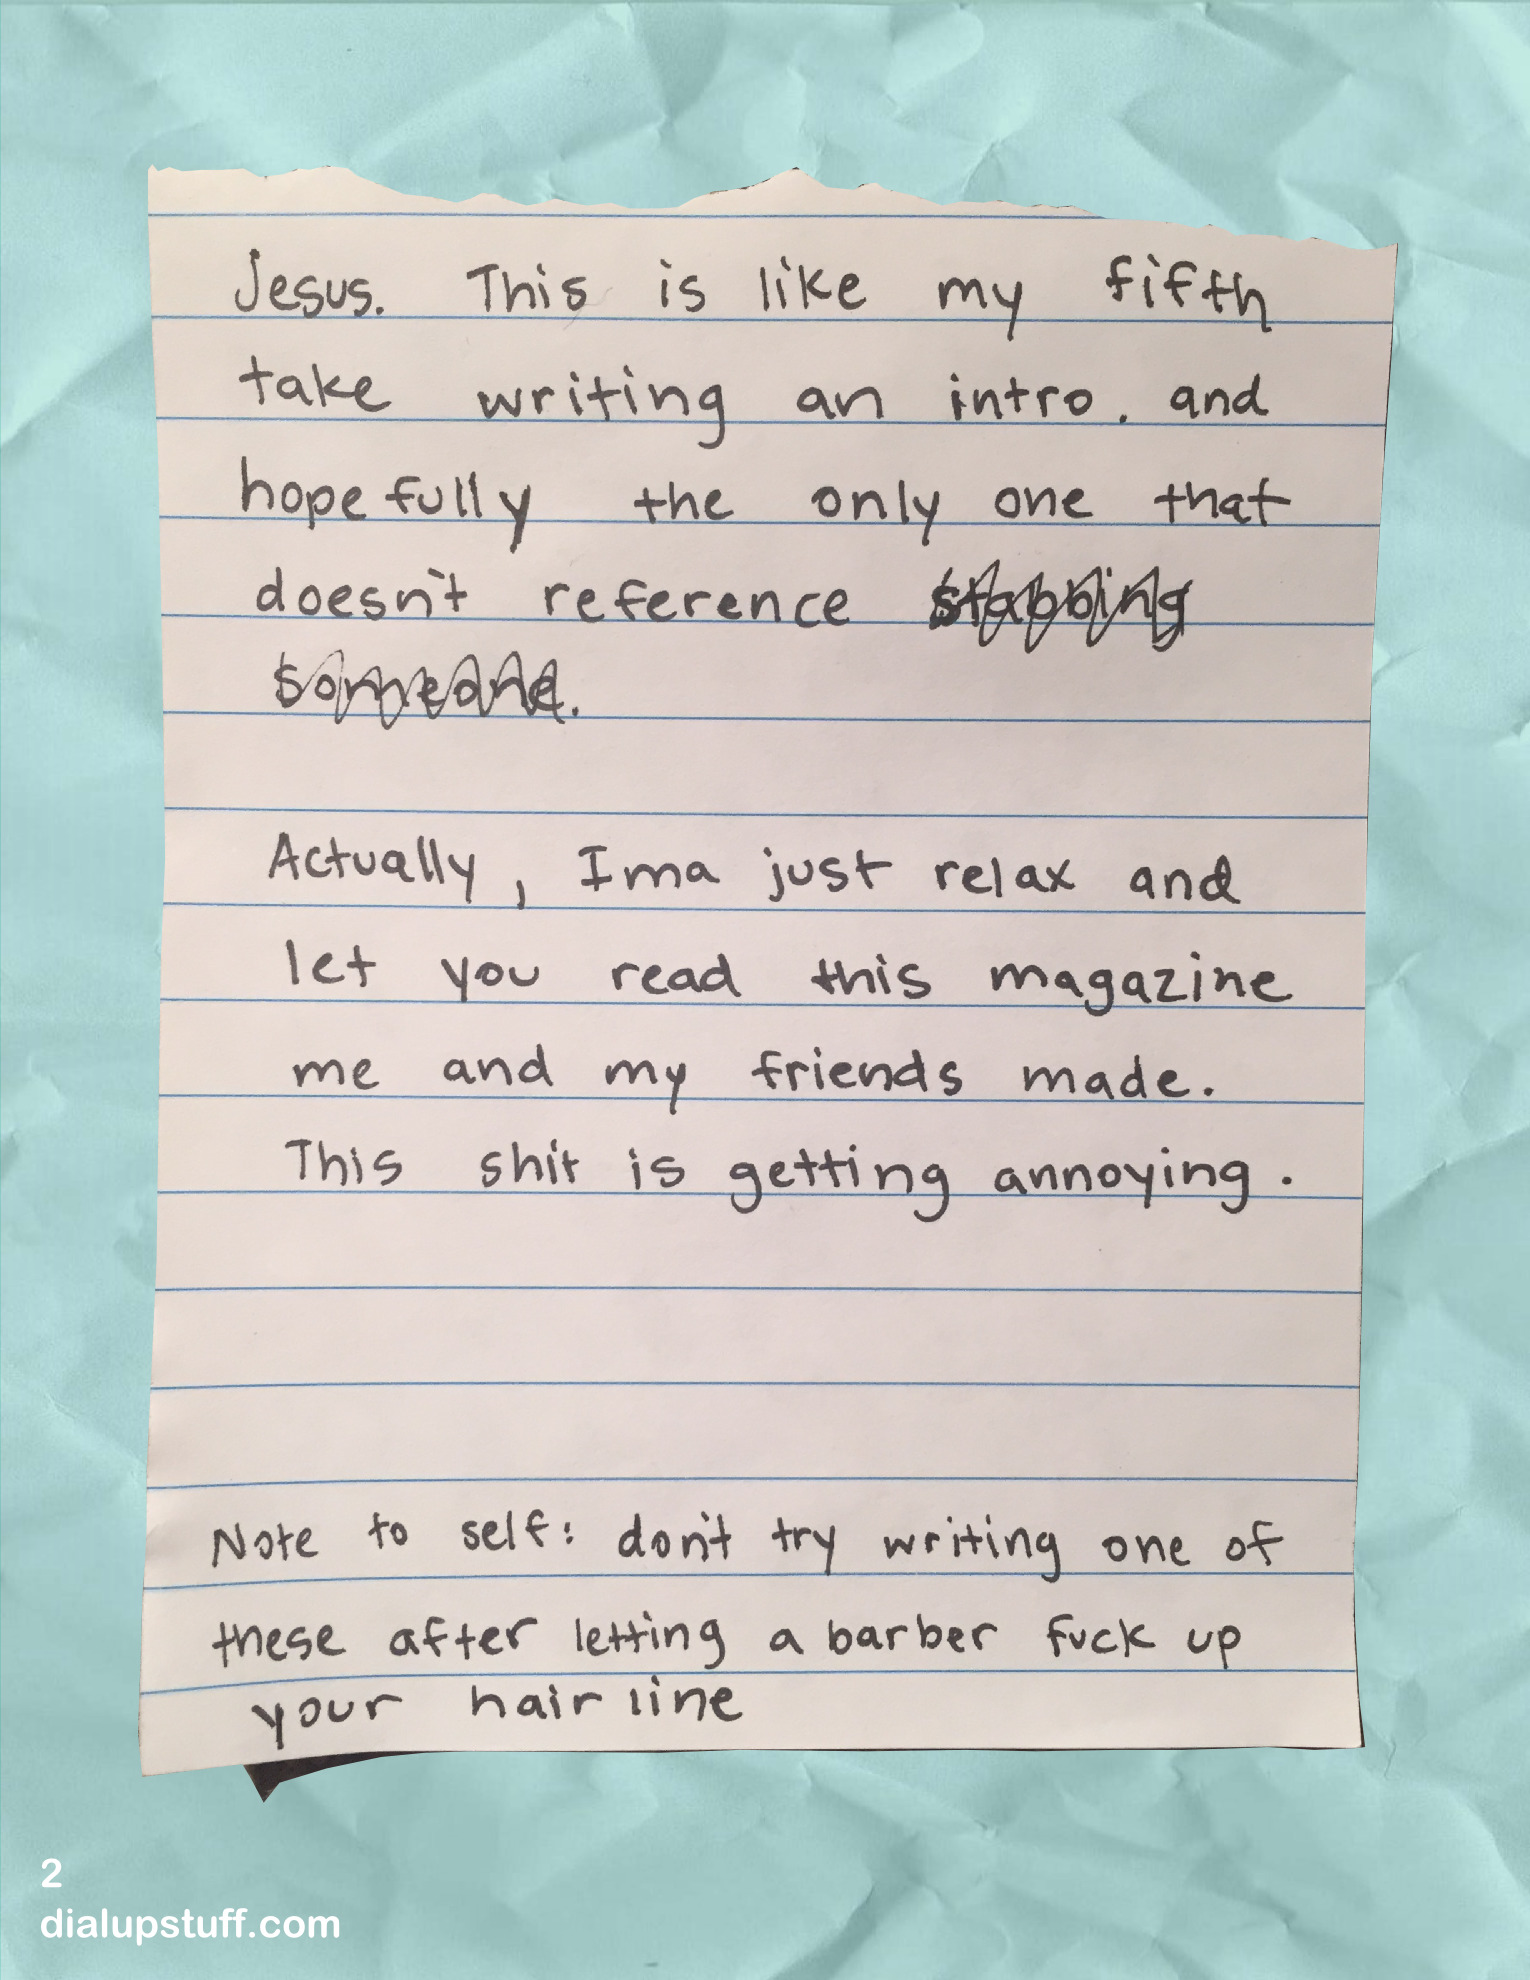 Jesus. This is like my fifth
take writing an intro. and
hopefully the only one that
doesn't reference stabbing
someone.
Actually, Ima just relax and
let you read this magazine
me and my friends made.
This shit is getting annoying.
Note to self: don't try writing one of
these after letting a barber fuck up
your hair line
2
dialupstuff.com